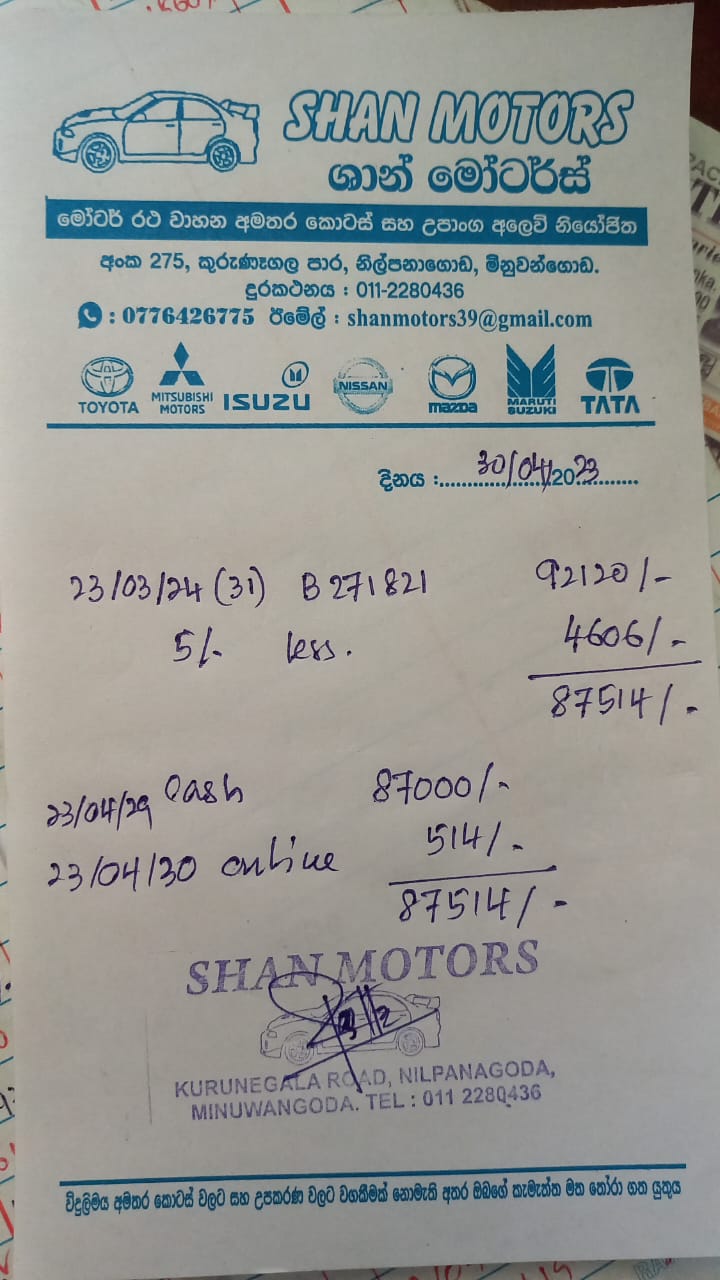 SHAN MOTORS
ශාන් මෝටර්ස්
මෝටර් රථ වාහන අමතර කොටස් සහ උපාංග අලෙවි නියෝජිත
අංක 275, කුරුණෑගල පාර, නිල්පනාගොඩ, මිනුවන්ගොඩ.
දුරකථනය : 011-2280436
: 0776426775 ඊමේල් : shanmotors39@gmail.com
TOYOTA MITSUBISHI MOTORS ISUZU NISSAN mazda MARUTI SUZUKI TATA
දිනය :....30/04/2023....
23/03/24 (31) B 271821 92120/-
5/- less. 4606/-
87514/-
23/04/29 Cash 87000/-
23/04/30 online 514/-
87514/-
SHAN MOTORS
KURUNEGALA ROAD, NILPANAGODA,
MINUWANGODA. TEL : 011 2280436
විදුලිමය අමතර කොටස් වලට සහ උපකරණ වලට වගකීමක් නොමැති අතර ඔබගේ කැමැත්ත මත තෝරා ගත යුතුය